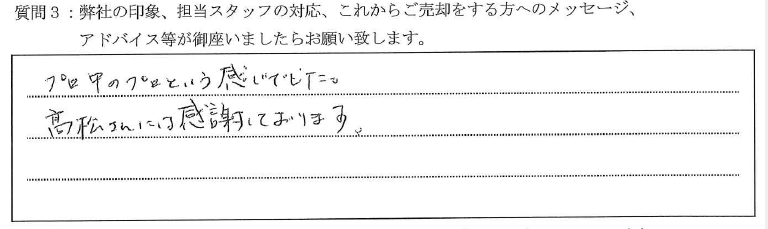 質問３：弊社の印象、担当スタッフの対応、これからご売却をする方へのメッセージ、
アドバイス等が御座いましたらお願い致します。
プロ中のプロという感じでした。
高松さんには感謝しております。